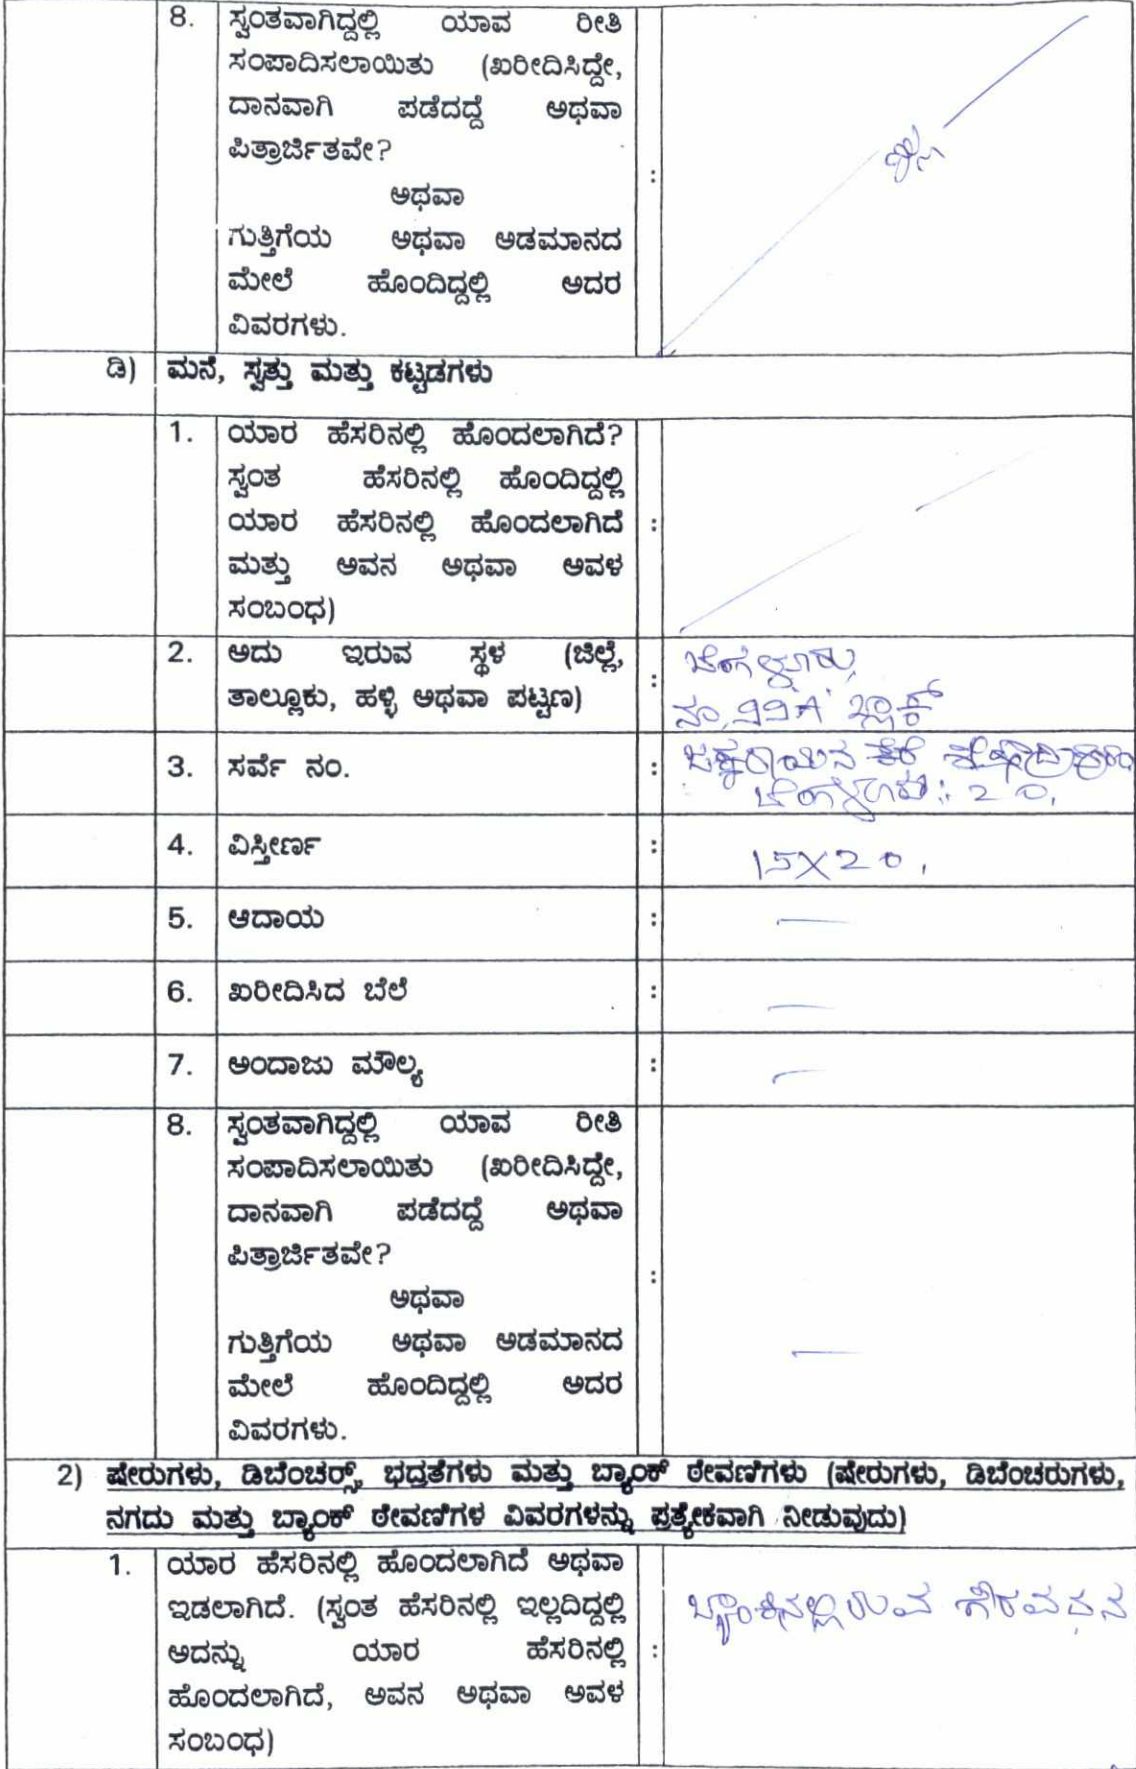 8. ಸ್ವಂತವಾಗಿದ್ದಲ್ಲಿ ಯಾವ ರೀತಿ
ಸಂಪಾದಿಸಲಾಯಿತು (ಖರೀದಿಸಿದ್ದೇ,
ದಾನವಾಗಿ ಪಡೆದದ್ದೆ ಅಥವಾ
ಪಿತ್ರಾರ್ಜಿತವೇ?
:
ಅಥವಾ
ಗುತ್ತಿಗೆಯ ಅಥವಾ ಅಡಮಾನದ
ಮೇಲೆ ಹೊಂದಿದ್ದಲ್ಲಿ ಅದರ
ವಿವರಗಳು.
ಡಿ) ಮನೆ, ಸ್ವತ್ತು ಮತ್ತು ಕಟ್ಟಡಗಳು
1. ಯಾರ ಹೆಸರಿನಲ್ಲಿ ಹೊಂದಲಾಗಿದೆ?
ಸ್ವಂತ ಹೆಸರಿನಲ್ಲಿ ಹೊಂದಿದ್ದಲ್ಲಿ
ಯಾರ ಹೆಸರಿನಲ್ಲಿ ಹೊಂದಲಾಗಿದೆ :
ಮತ್ತು ಅವನ ಅಥವಾ ಅವಳ
ಸಂಬಂಧ)
2. ಅದು ಇರುವ ಸ್ಥಳ (ಜಿಲ್ಲೆ,
ತಾಲ್ಲೂಕು, ಹಳ್ಳಿ ಅಥವಾ ಪಟ್ಟಣ) :
ಬೆಂಗಳೂರು,
ಬ್ಲಾಕ್
3. ಸರ್ವೆ ನಂ. : ಜಕ್ಕರಾಯನ ಕೆರೆ
ಬೆಂಗಳೂರು: 20.
4. ವಿಸ್ತೀರ್ಣ : 15X20,
5. ಆದಾಯ : —
6. ಖರೀದಿಸಿದ ಬೆಲೆ : —
7. ಅಂದಾಜು ಮೌಲ್ಯ : —
8. ಸ್ವಂತವಾಗಿದ್ದಲ್ಲಿ ಯಾವ ರೀತಿ
ಸಂಪಾದಿಸಲಾಯಿತು (ಖರೀದಿಸಿದ್ದೇ,
ದಾನವಾಗಿ ಪಡೆದದ್ದೆ ಅಥವಾ
ಪಿತ್ರಾರ್ಜಿತವೇ?
:
ಅಥವಾ
ಗುತ್ತಿಗೆಯ ಅಥವಾ ಅಡಮಾನದ —
ಮೇಲೆ ಹೊಂದಿದ್ದಲ್ಲಿ ಅದರ
ವಿವರಗಳು.
2) ಷೇರುಗಳು, ಡಿಬೆಂಚರ್ಸ್, ಭದ್ರತೆಗಳು ಮತ್ತು ಬ್ಯಾಂಕ್ ಠೇವಣಿಗಳು (ಷೇರುಗಳು, ಡಿಬೆಂಚರುಗಳು,
ನಗದು ಮತ್ತು ಬ್ಯಾಂಕ್ ಠೇವಣಿಗಳ ವಿವರಗಳನ್ನು ಪ್ರತ್ಯೇಕವಾಗಿ ನೀಡುವುದು)
1. ಯಾರ ಹೆಸರಿನಲ್ಲಿ ಹೊಂದಲಾಗಿದೆ ಅಥವಾ
ಇಡಲಾಗಿದೆ. (ಸ್ವಂತ ಹೆಸರಿನಲ್ಲಿ ಇಲ್ಲದಿದ್ದಲ್ಲಿ
ಅದನ್ನು ಯಾರ ಹೆಸರಿನಲ್ಲಿ :
ಹೊಂದಲಾಗಿದೆ, ಅವನ ಅಥವಾ ಅವಳ
ಸಂಬಂಧ)
ಬ್ಯಾಂಕಿನಲ್ಲಿರುವ ಗೌರವಧನ